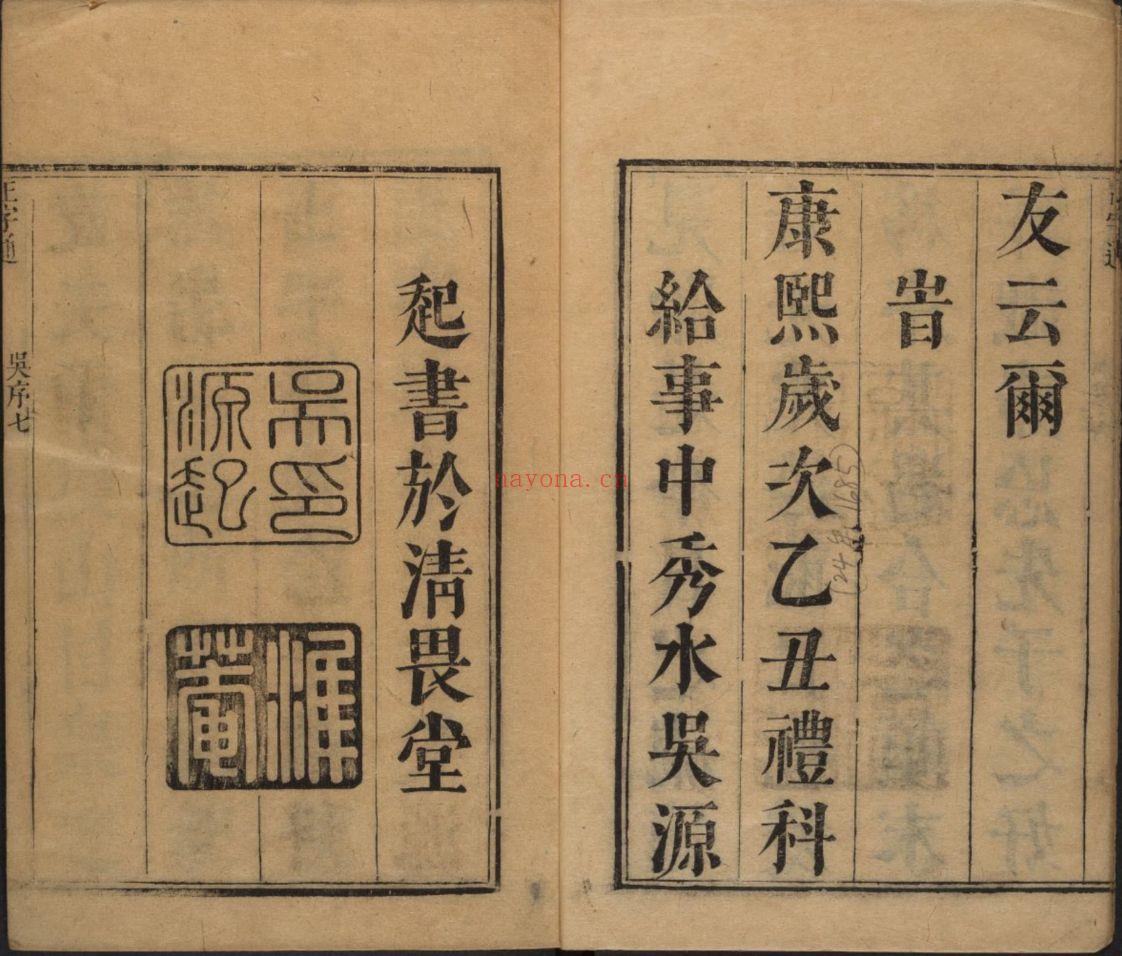 友云爾
旹
康熙歲次乙丑禮科
給事中秀水吳源
起書於清畏堂
吳印
源起
準菴
正字通
吳序七
(24年,1685)
nayona.cn